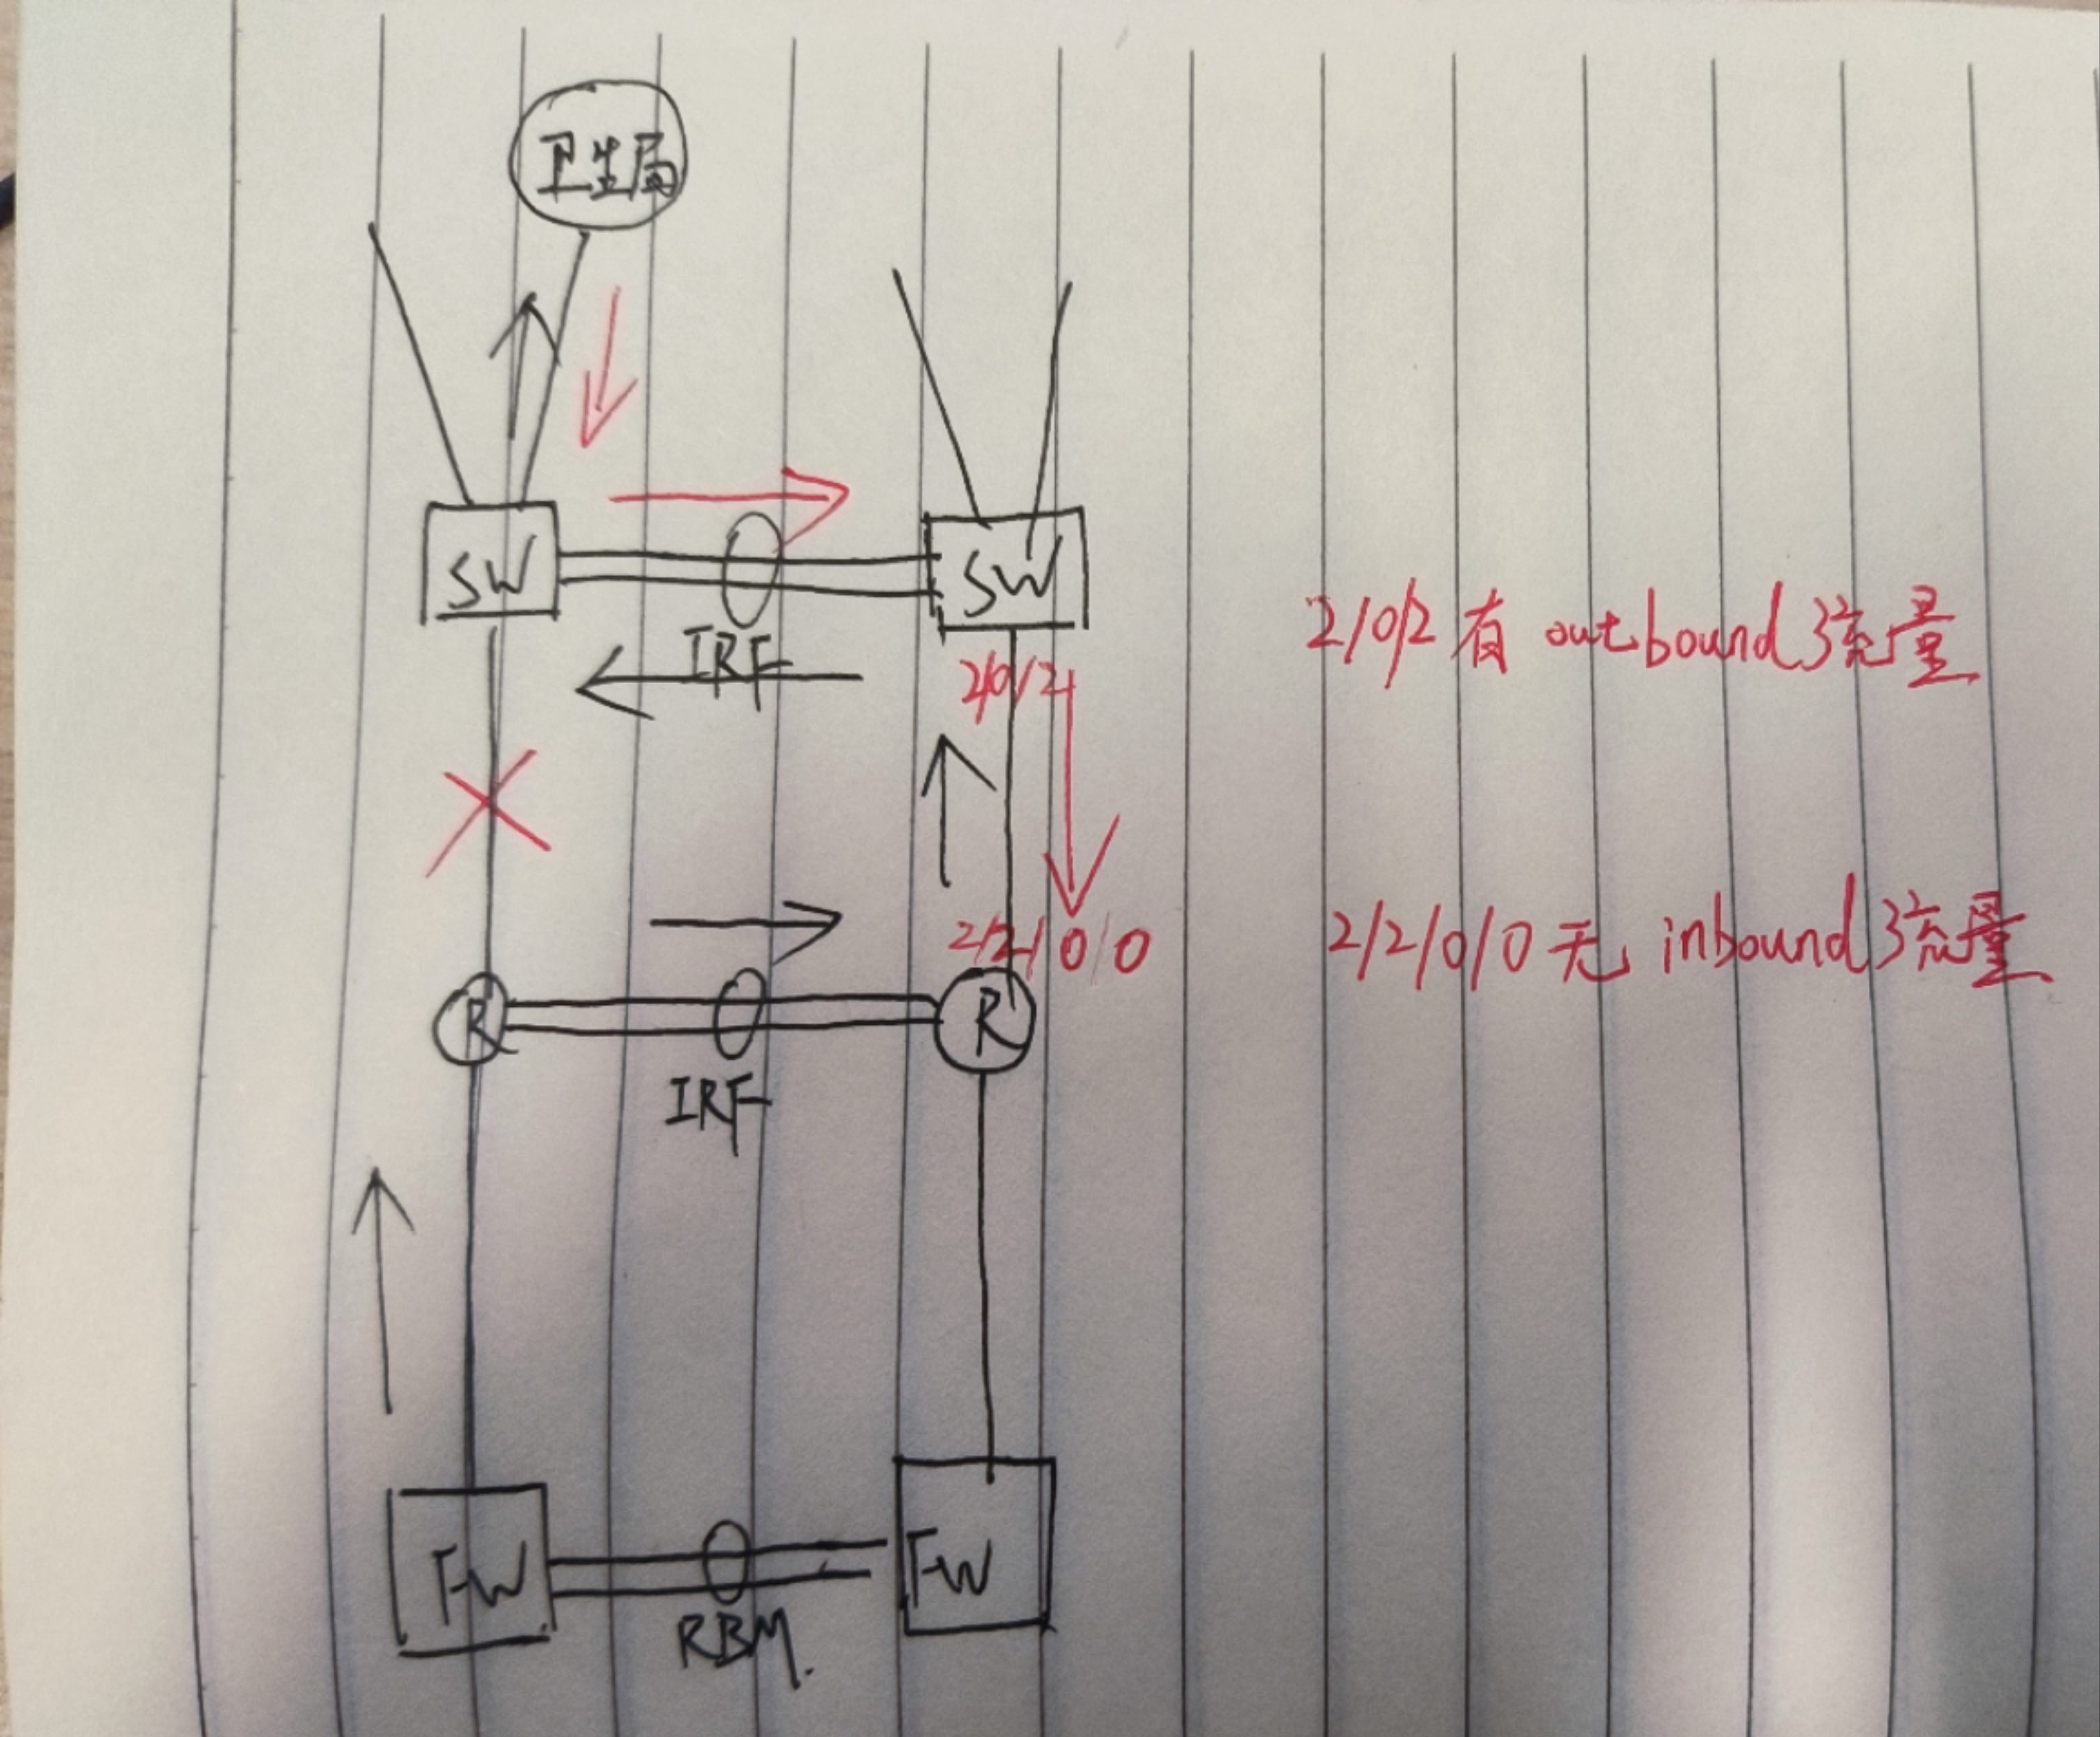 卫生局
SW
SW
IRF
2/0/2
2/0/2 有 outbound 流量
2/2/0/0
2/2/0/0 无 inbound 流量
R
R
IRF
FW
FW
RBM.